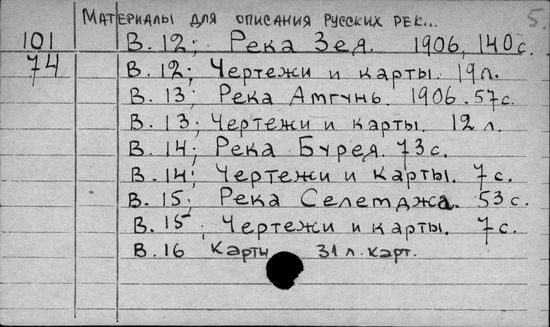 Материалы для описания русских рек... 5.
101 В. 12; Река Зея. 1906, 140 с.
74 В. 12; Чертежи и карты. 19 л.
В. 13; Река Амгунь. 1906. 57 с.
В. 13; Чертежи и карты. 12 л.
В. 14; Река Бурея. 73 с.
В. 14; Чертежи и карты. 7 с.
В. 15; Река Селемджа. 53 с.
В. 15; Чертежи и карты. 7 с.
В. 16 Карты 31 л. карт.